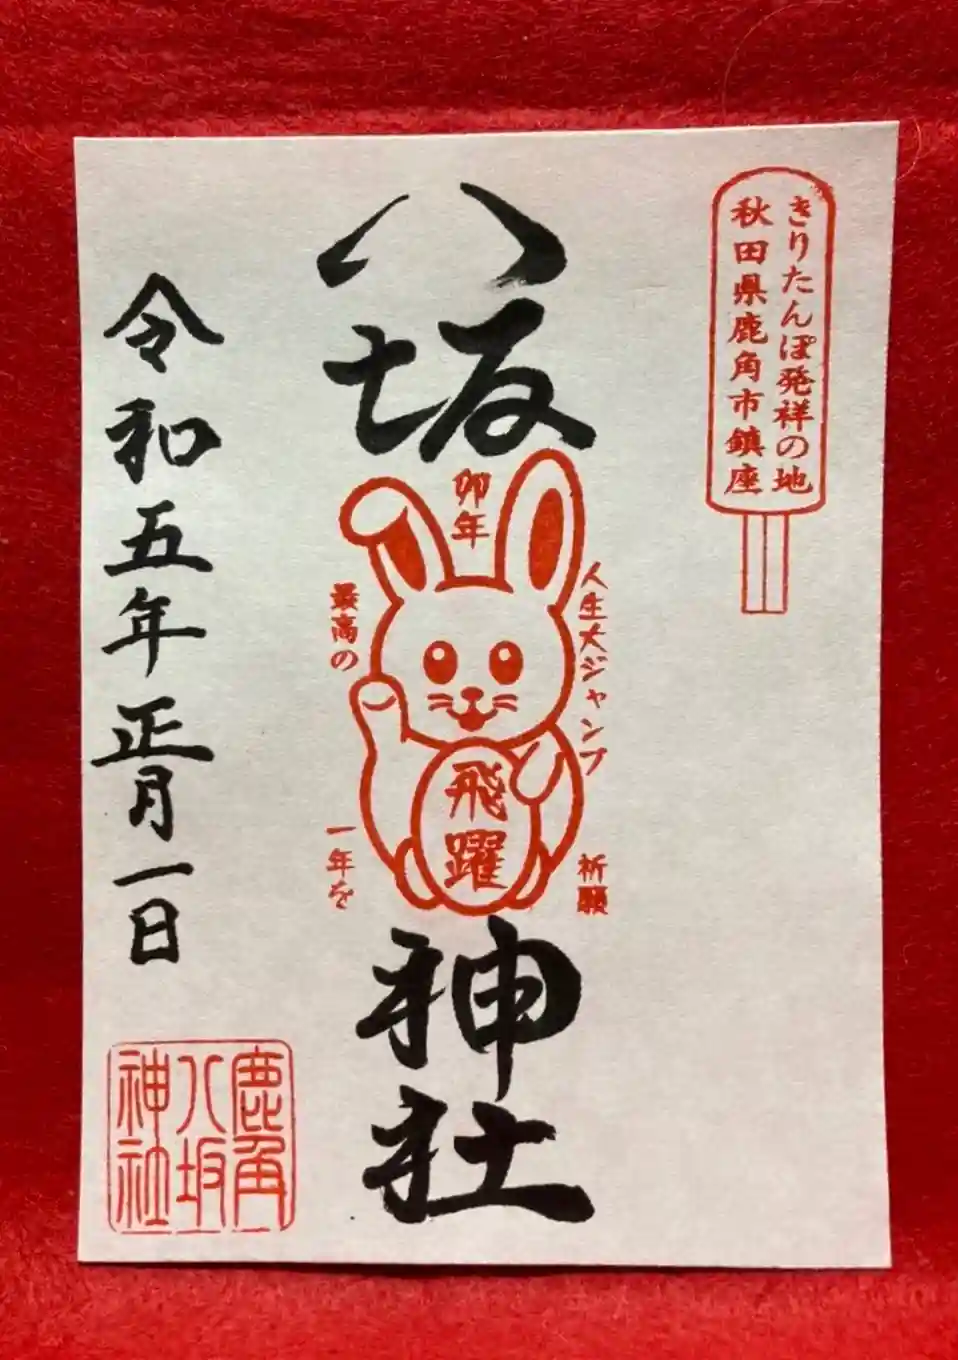 きりたんぽ発祥の地
秋田県鹿角市鎮座
八坂
神社
卯年
人生大ジャンプ
祈願
最高の
一年を
飛躍
令和五年正月一日
鹿角
八坂
神社